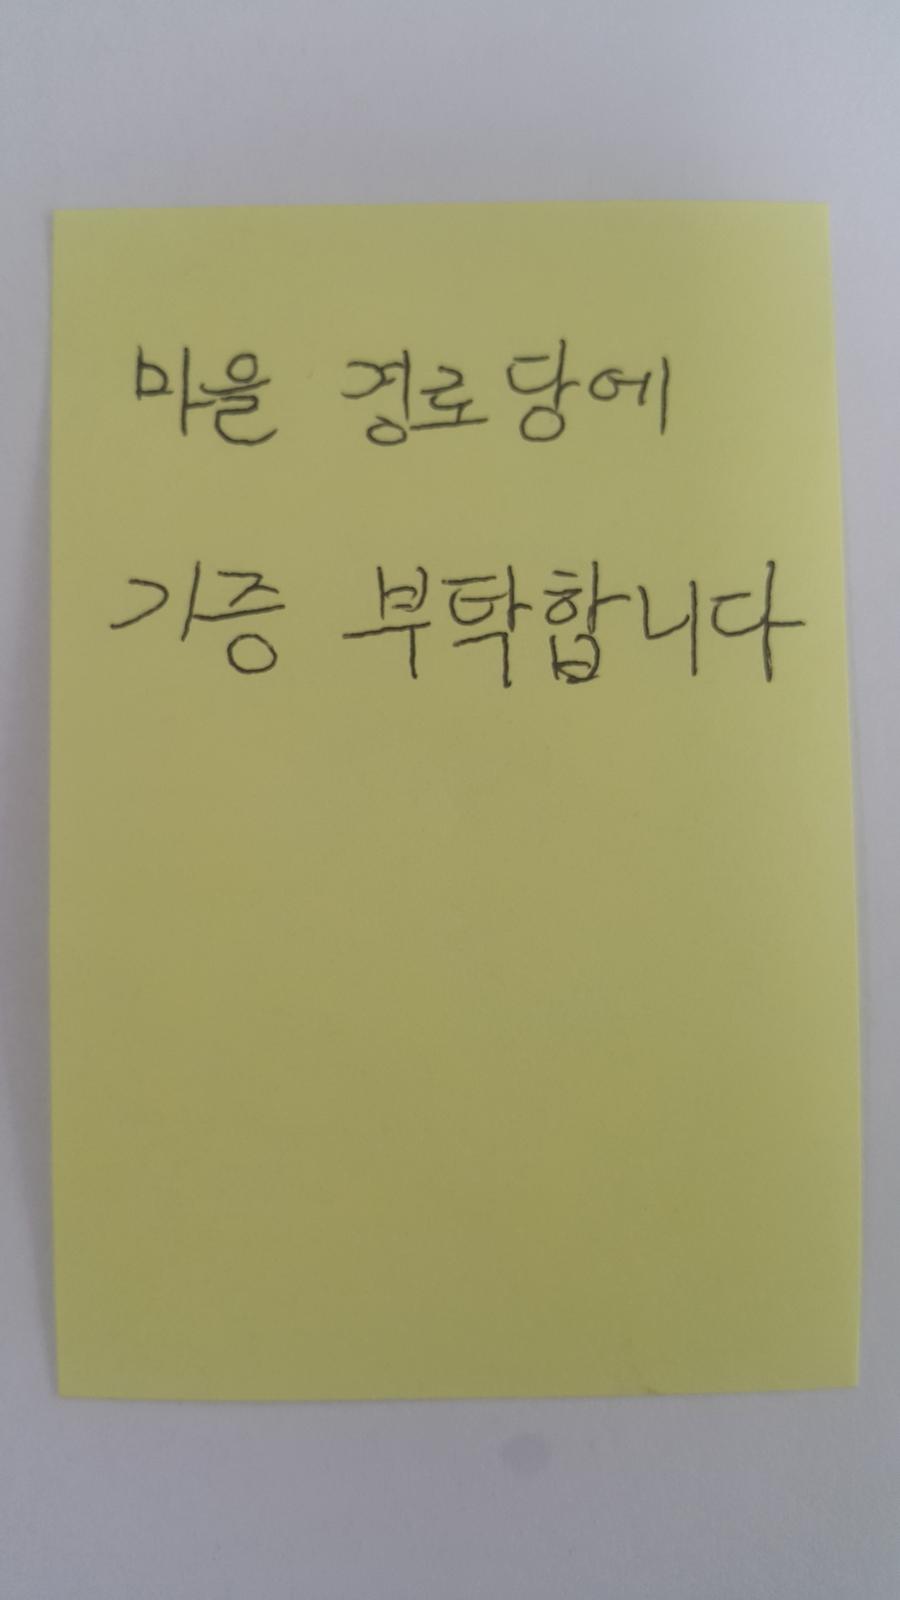 마을 경로당에
기증 부탁합니다